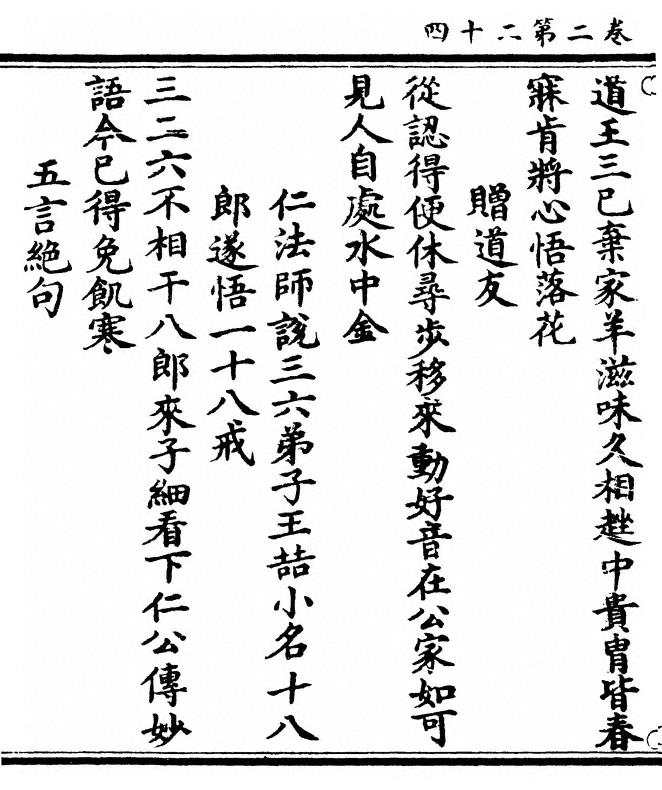 卷二第二十四
道王三已棄家羊滋味久相趖中貴胄皆春
寐肯將心悟落花
贈道友
從認得便休尋步移來動好音在公家如可
見人自處水中金
仁法師說三六弟子王喆小名十八
郎遂悟一十八戒
三二六不相干八郎來子細看下仁公傳妙
語今已得免飢寒
五言絶句